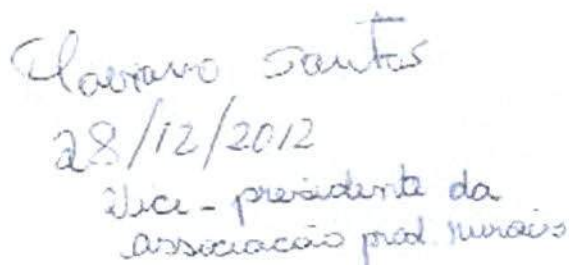 Flaviano Santos
28/12/2012
Vice-presidente da
associacão prod. rurais